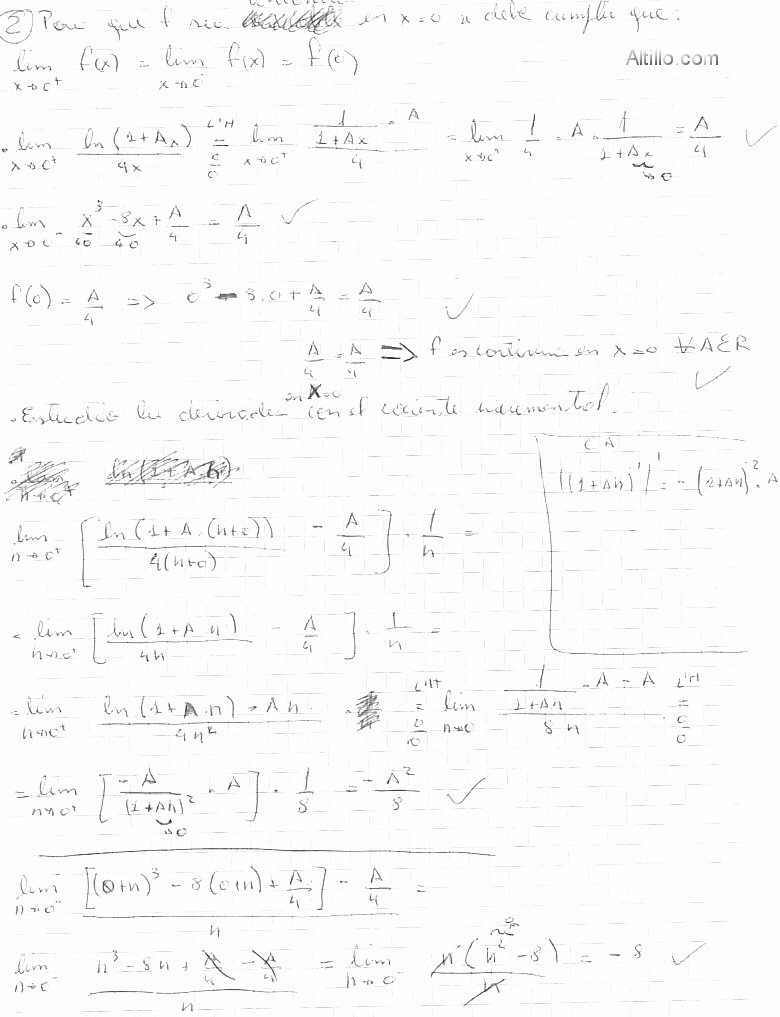 ② Para que f sea continua en x=0 se debe cumplir que:
lim x→0⁺ f(x) = lim x→0⁻ f(x) = f(0)
Altillo.com
• lim x→0⁺ ln(1+Ax)/4x =(L'H 0/0) lim x→0⁺ (1/(1+Ax) · A)/4 = lim x→0⁺ 1/4 · A · 1/(1+Ax) = A/4 ✓
→0
• lim x→0⁻ x³ - 8x + A/4 = A/4 ✓
→0 →0
f(0) = A/4 => 0³ - 8.0 + A/4 = A/4 ✓
A/4 = A/4 => f es continua en x=0 ∀A∈R ✓
• Estudio la derivada en x=0 con el cociente incremental.
CA
((1+Ah)⁻¹)' = -(1+Ah)⁻² · A
lim h→0⁺ [ln(1+A.(h+0))/4(h+0) - A/4] · 1/h =
= lim h→0⁺ [ln(1+A.h)/4h - A/4] · 1/h =
= lim h→0⁺ (ln(1+A.h) - Ah)/4h² =(L'H 0/0) lim h→0⁺ (1/(1+Ah) · A - A)/8h =(L'H 0/0)
= lim h→0⁺ [-A/(1+Ah)² · A] · 1/8 = -A²/8 ✓
→0
lim h→0⁻ ([(0+h)³ - 8(0+h) + A/4] - A/4)/h =
lim h→0⁻ (h³ - 8h + A/4 - A/4)/h = lim h→0⁻ h(h² - 8)/h = -8 ✓